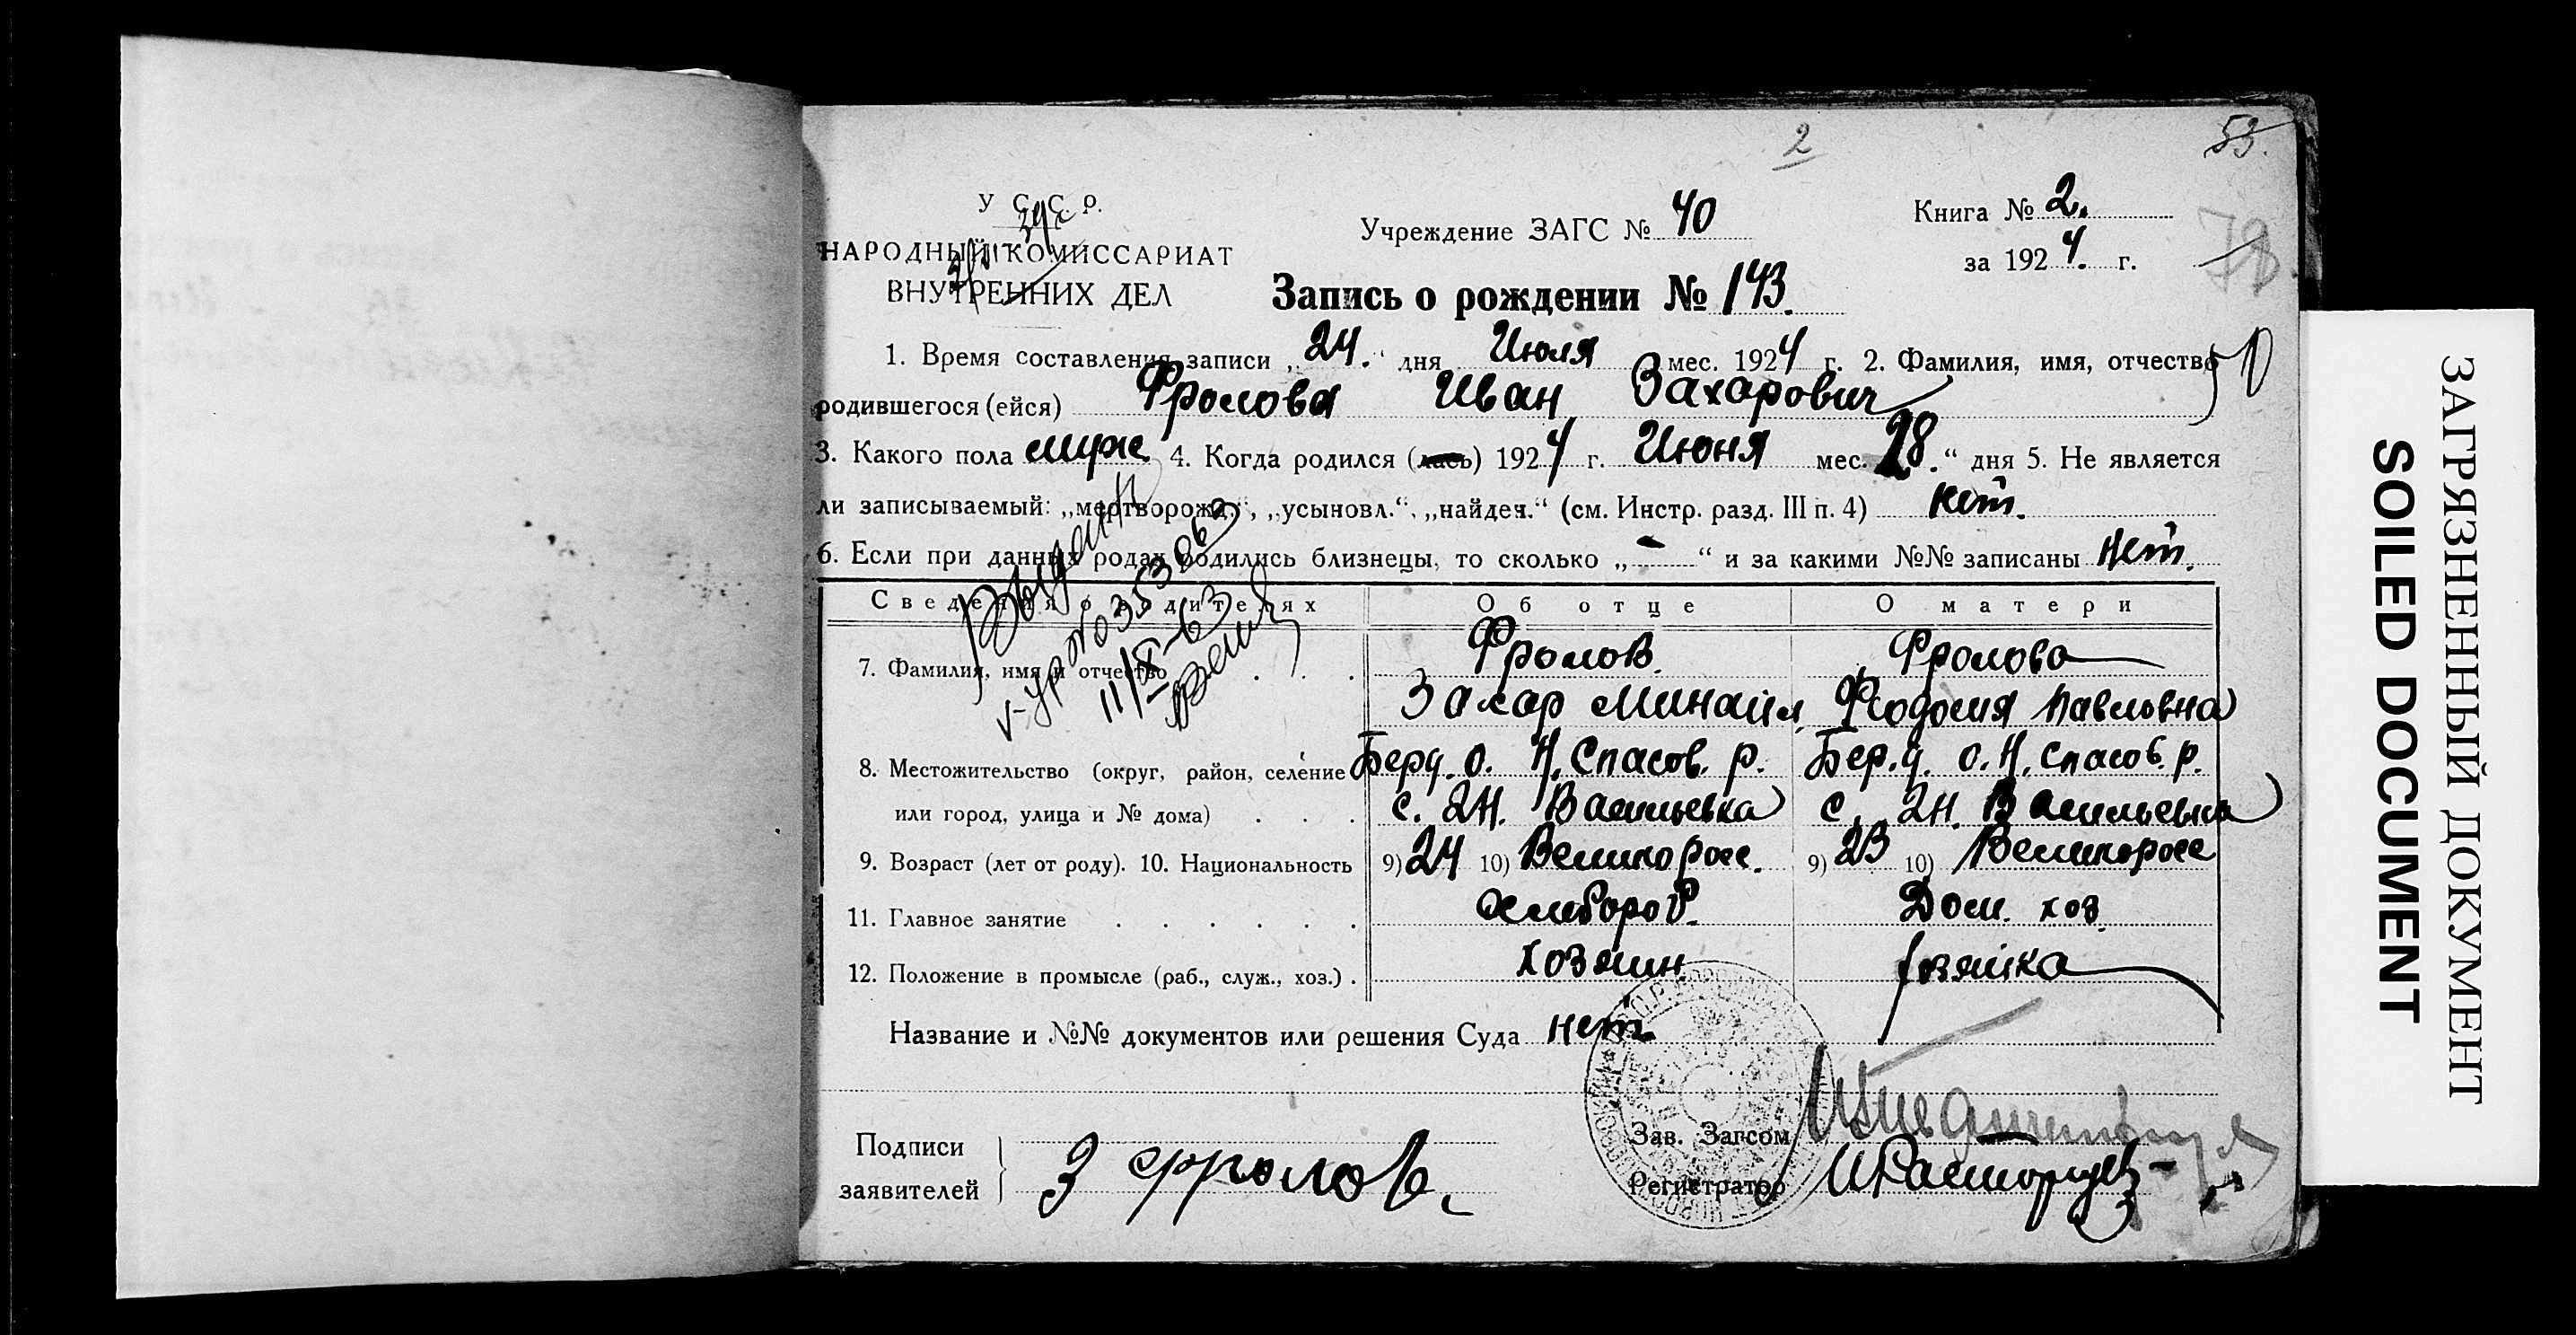 2
53.
78
У С. С. Р.
НАРОДНЫЙ КОМИССАРИАТ
ВНУТРЕННИХ ДЕЛ
Учреждение ЗАГС № 40
Книга № 2.
за 1924. г.
Запись о рождении № 143.
1. Время составления записи „24.“ дня Июля мес. 1924 г. 2. Фамилия, имя, отчество
родившегося (ейся) Фролова Иван Захарович
3. Какого пола муж 4. Когда родился (лась) 1924 г. Июня мес. 28.“ дня 5. Не является
ли записываемый: „мертворожд.“, „усыновл.“, „найден.“ (см. Инстр. разд. III п. 4) нет.
6. Если при данных родах родились близнецы, то сколько „ - “ и за какими №№ записаны нет.
Сведения о родителях Об отце О матери
7. Фамилия, имя и отчество . . . Фролов. Фролова
Захар Минаил. Феодосия Павловна
8. Местожительство (округ, район, селение Берд. о. Н. Спасов. р. Бер.д. о. Н. Спасов. р.
или город, улица и № дома) . . . с. 2Н. Васильевка с. 2Н. Васильевка
9. Возраст (лет от роду). 10. Национальность 9) 24 10) Великоросс. 9) 23 10) Великоросс
11. Главное занятие . . . . . . Хлебороб. Дом. хоз.
12. Положение в промысле (раб., служ., хоз.) . хозяин. хозяйка
Выдан
11/X-63
Название и №№ документов или решения Суда нет
Подписи
заявителей
З Фролов.
Зав. Загсом
Регистратор
ЗАГРЯЗНЕННЫЙ ДОКУМЕНТ
SOILED DOCUMENT